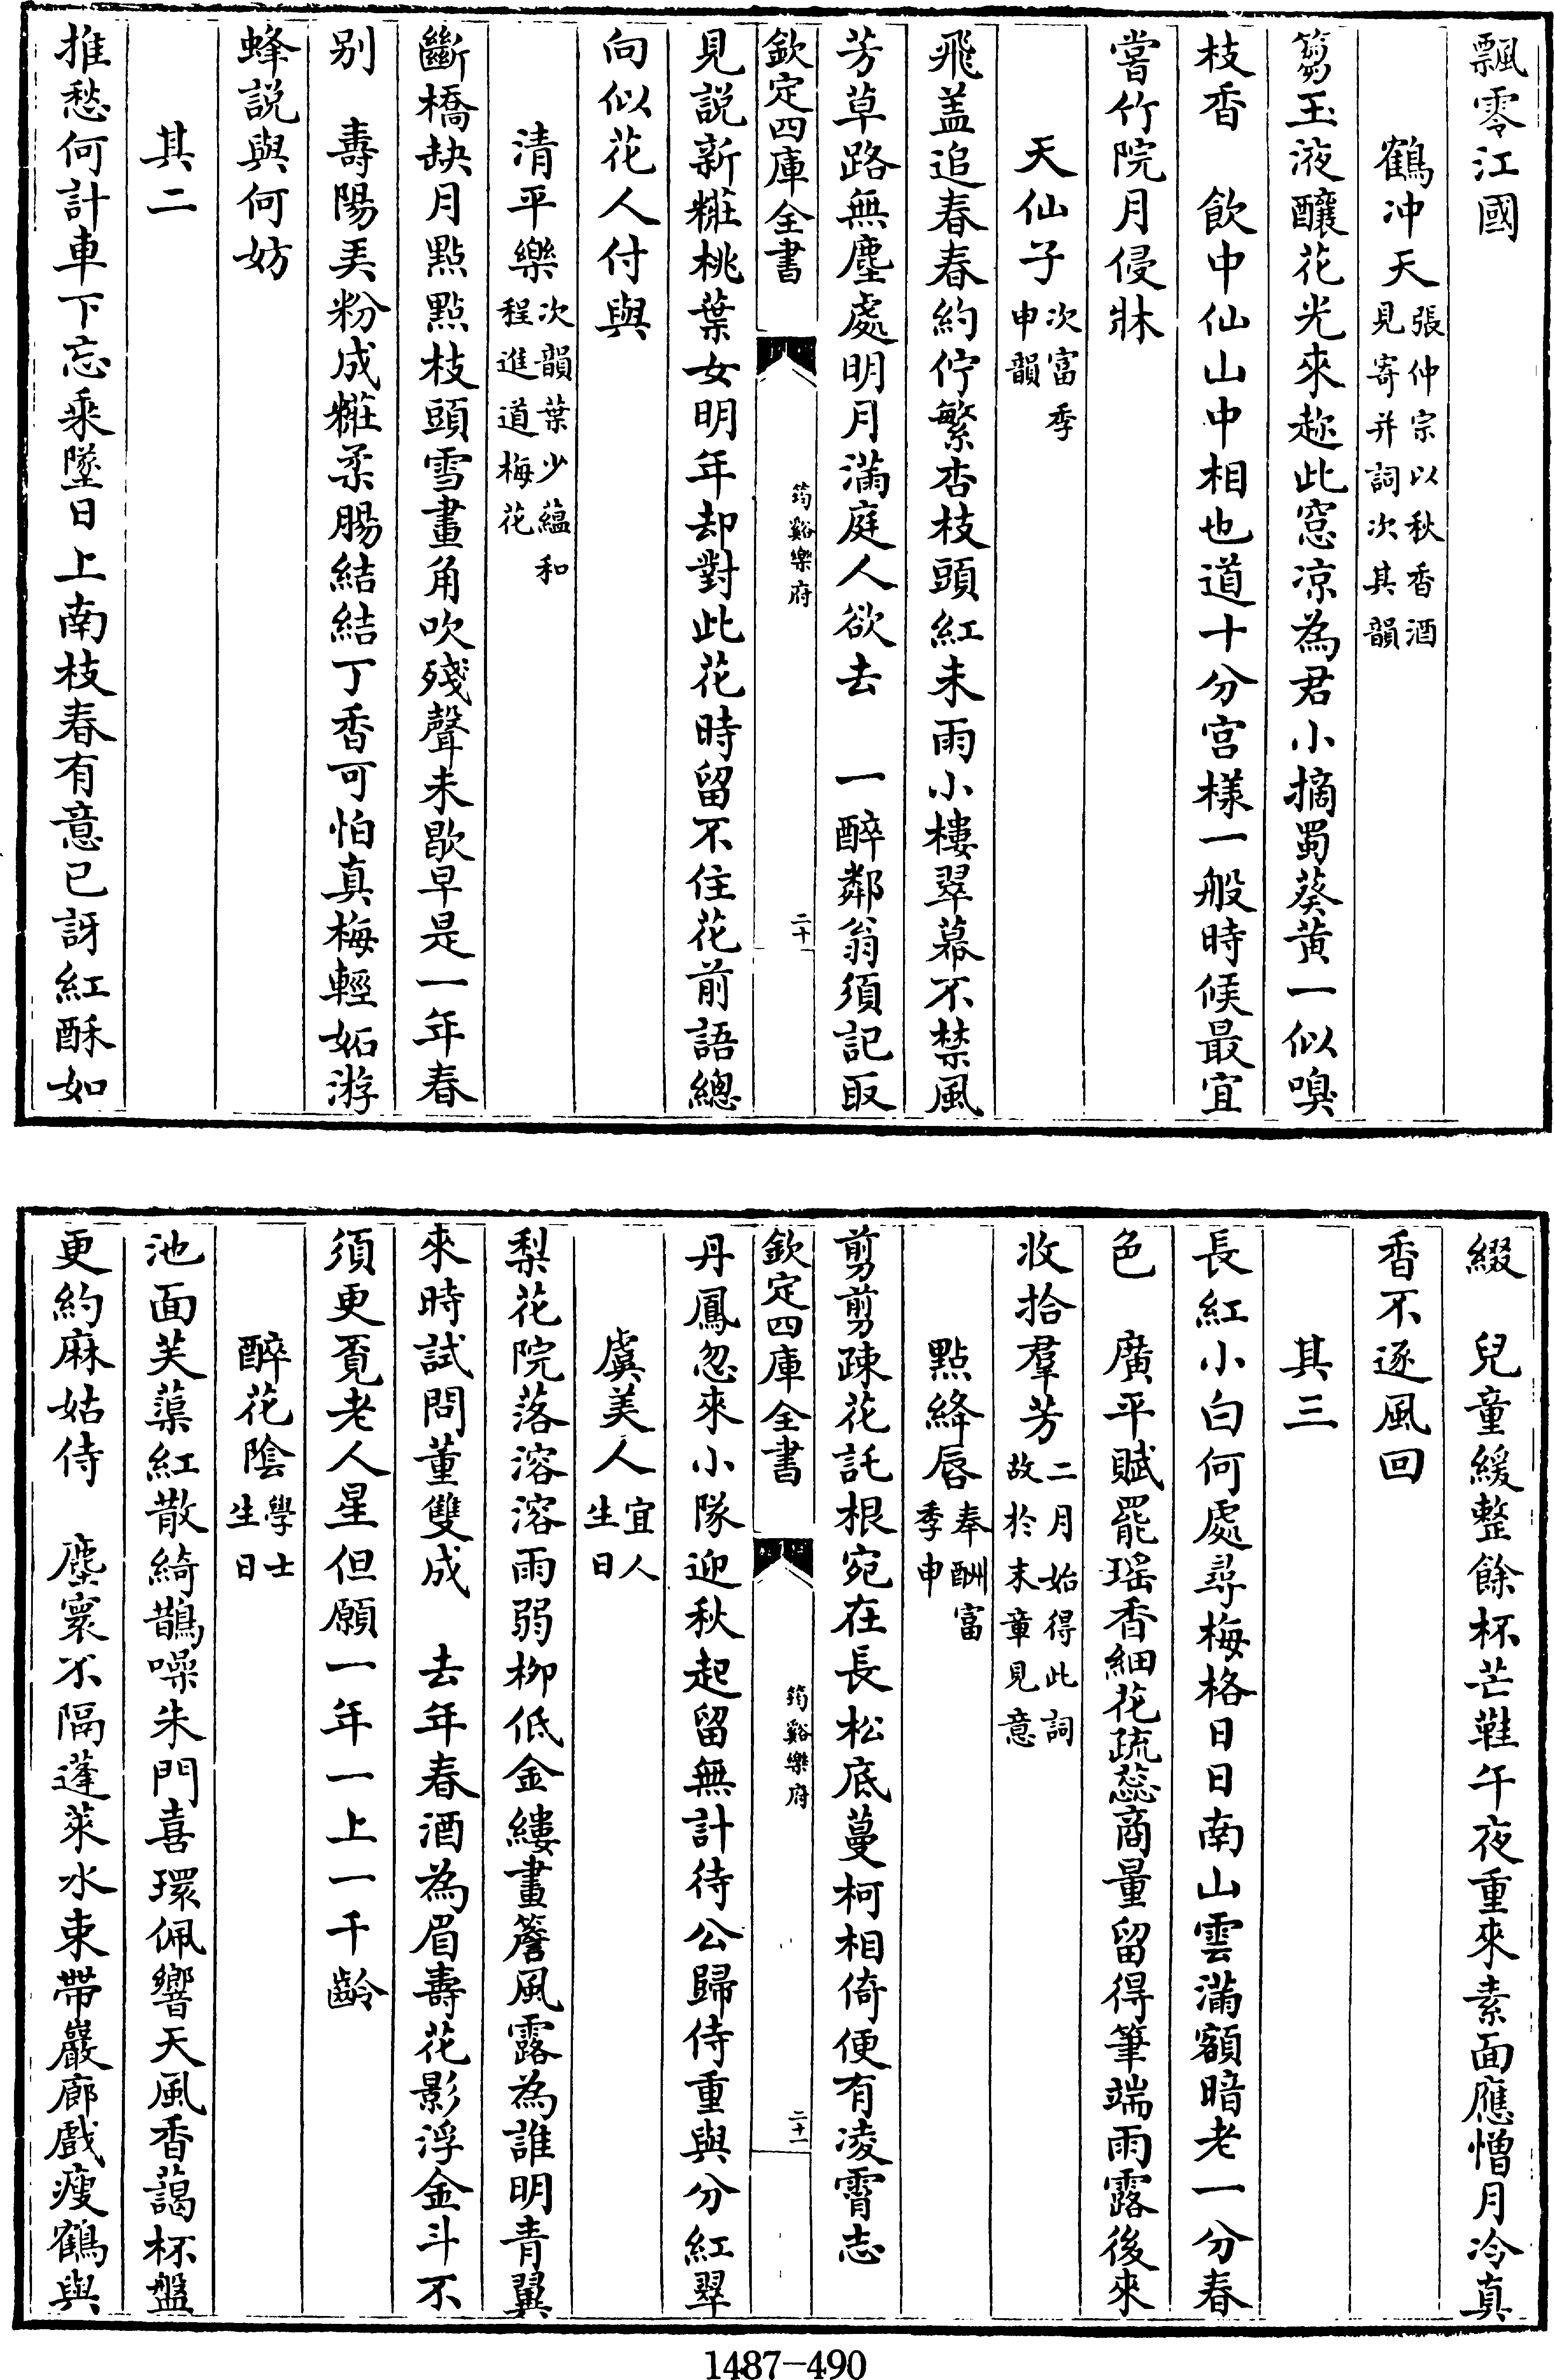 飄零江國
鶴冲天張仲宗以秋香酒見寄并詞次其韻
篘玉液釀花光來趂此窓凉為君小摘蜀葵黄一似嗅
枝香　飲中仙山中相也道十分宫樣一般時候最宜
嘗竹院月侵牀
天仙子次富季申韻
飛盖追春春約佇繁杏枝頭紅未雨小樓翠幕不禁風
芳草路無塵處明月滿庭人欲去　一醉鄰翁須記取
欽定四庫全書　筠谿樂府　二十
見説新粧桃葉女明年却對此花時留不住花前語總
向似花人付與
清平樂次韻葉少蘊和程進道梅花
斷橋缺月點點枝頭雪畫角吹殘聲未歇早是一年春
别　壽陽美粉成粧柔腸結結丁香可怕真梅輕妬游
蜂説與何妨
其二
推愁何計車下忘乘墜日上南枝春有意已訝紅酥如
綴　兒童緩整餘杯芒鞋午夜重來素面應憎月冷真
香不逐風回
其三
長紅小白何處尋梅格日日南山雲滿額暗老一分春
色　廣平賦罷瑶香細花疏蕊商量留得筆端雨露後來
收拾羣芳二月始得此詞故於末章見意
點絳唇奉酬富季申
剪剪疎花託根宛在長松底蔓柯相倚便有凌霄志
欽定四庫全書　筠谿樂府　二十一
丹鳳忽來小隊迎秋起留無計待公歸侍重與分紅翠
虞美人宜人生日
梨花院落溶溶雨弱栁低金縷畫簷風露為誰明青翼
來時試問董雙成　去年春酒為眉壽花影浮金斗不
須更覓老人星但願一年一上一千齡
醉花隂學士生日
池面芙蕖紅散綺鵲噪朱門喜環佩響天風香藹杯盤
更約麻姑侍　塵寰不隔蓬萊水束帶巖廊戲瘦鶴與
1487-490